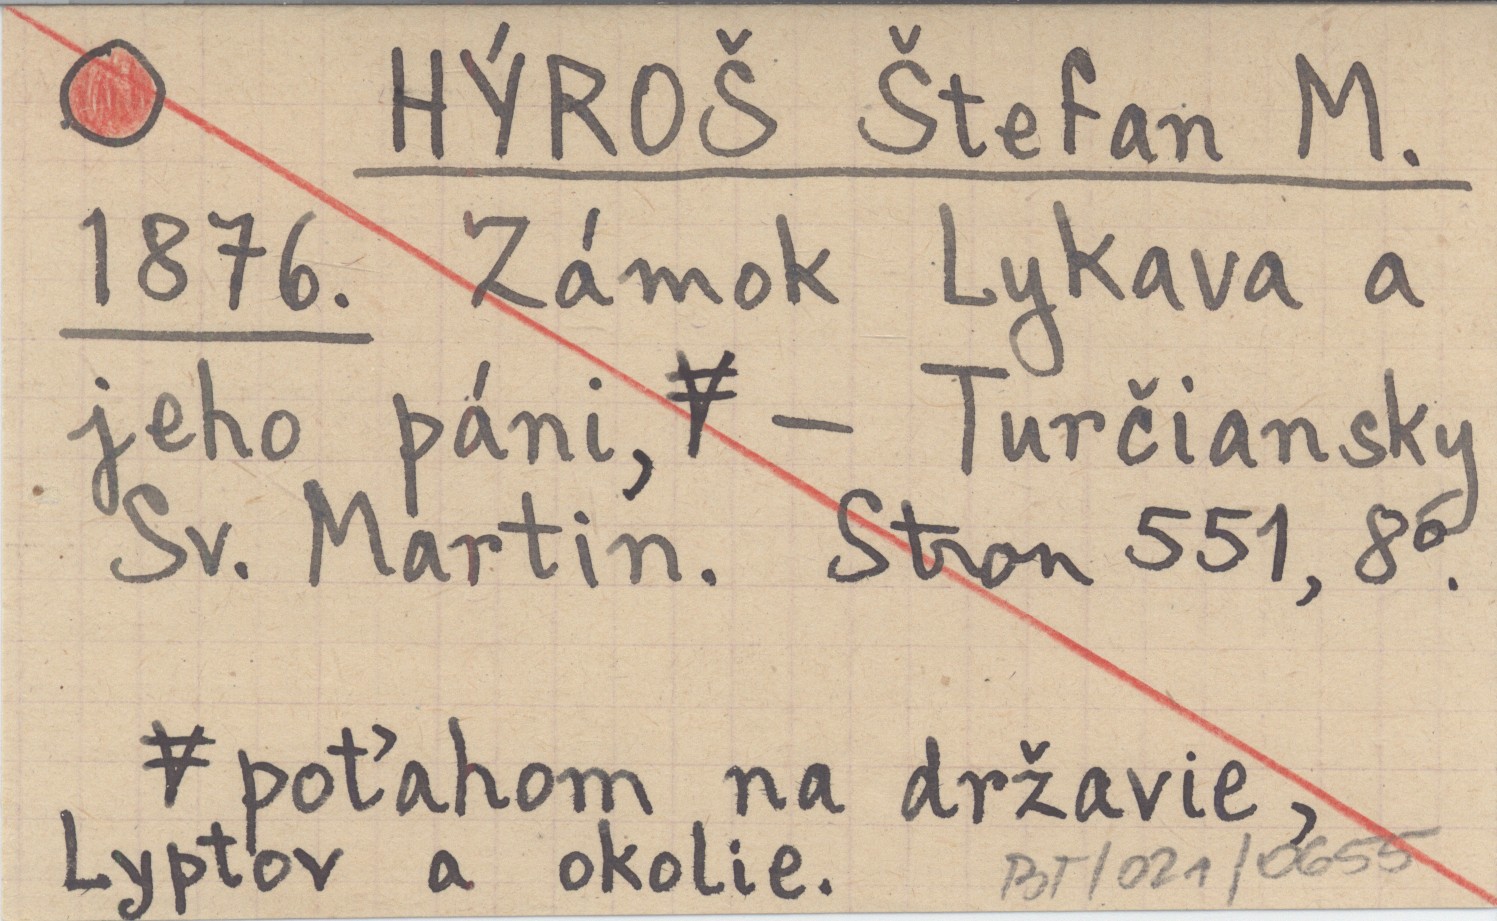 HÝROŠ Štefan M.
1876. Zámok Lykava a
jeho páni, ∀ — Turčiansky
Sv. Martin. Stron 551, 8°.
∀ poťahom na državie,
Lyptov a okolie.
BT/021/0655